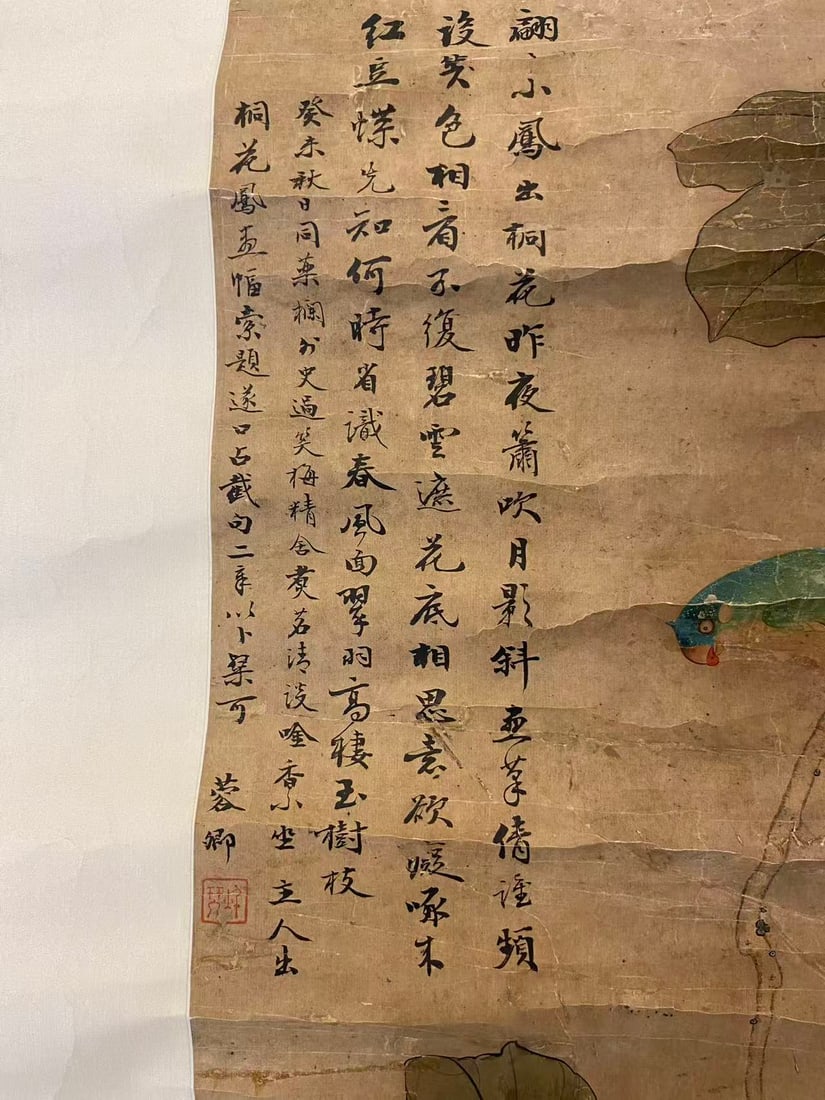 翩〻小鳳出桐花昨夜簫吹月影斜画筆倩誰頻
設色相看不復碧雲遮花底相思意欲癡啄木
紅豆蝶先知何時省識春風面翠羽高棲玉樹枝
癸未秋日同藥欄外史過笑梅精舍煑茗清談唫香小坐主人出
桐花鳳画幅索題遂口占截句二章以卜粲可
蓉卿